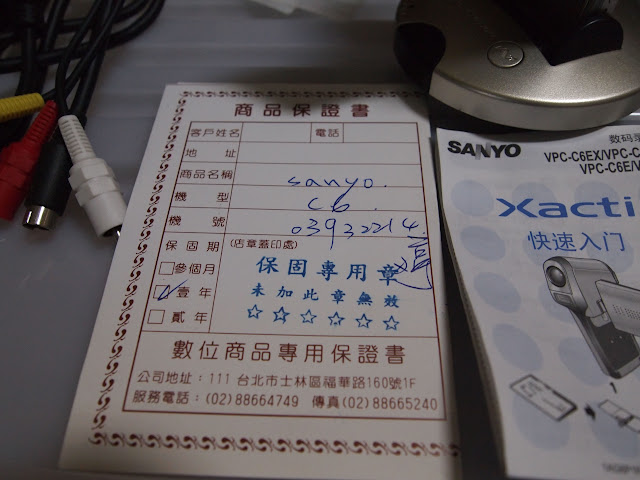 商品保證書
客戶姓名 電話
地 址
商品名稱 sanyo.
機 型 C6.
機 號 03932214.
保固期 (店章蓋印處)
參個月
壹年
貳年
保固專用章
未加此章無效
☆☆☆☆☆☆
數位商品專用保證書
公司地址：111 台北市士林區福華路160號1F
服務電話：(02)88664749 傳真(02)88665240
SANYO
数码
VPC-C6EX/VPC-C
VPC-C6E/V
Xacti
快速入门